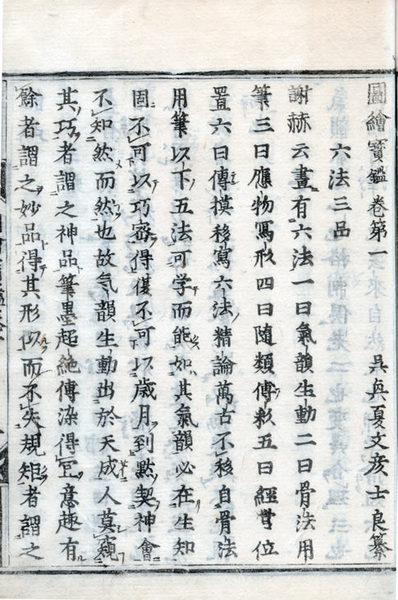 圖繪寳鑑卷第一
吳興夏文彦士良纂
六法三品
謝赫云畫有六法一曰氣韻生動二曰骨法用
筆三曰應物寫形四曰隨類傅彩五曰經營位
置六曰傳摸移寫六法精論萬古不移自骨法
用筆以下五法可学而能如其氣韻必在生知
固不可以巧密得復不可以歲月到黙契神會
不知然而然也故氣韻生動出於天成人莫窺
其巧者謂之神品筆墨超絶傳染得宜意趣有
餘者謂之妙品得其形似而不失規矩者謂之